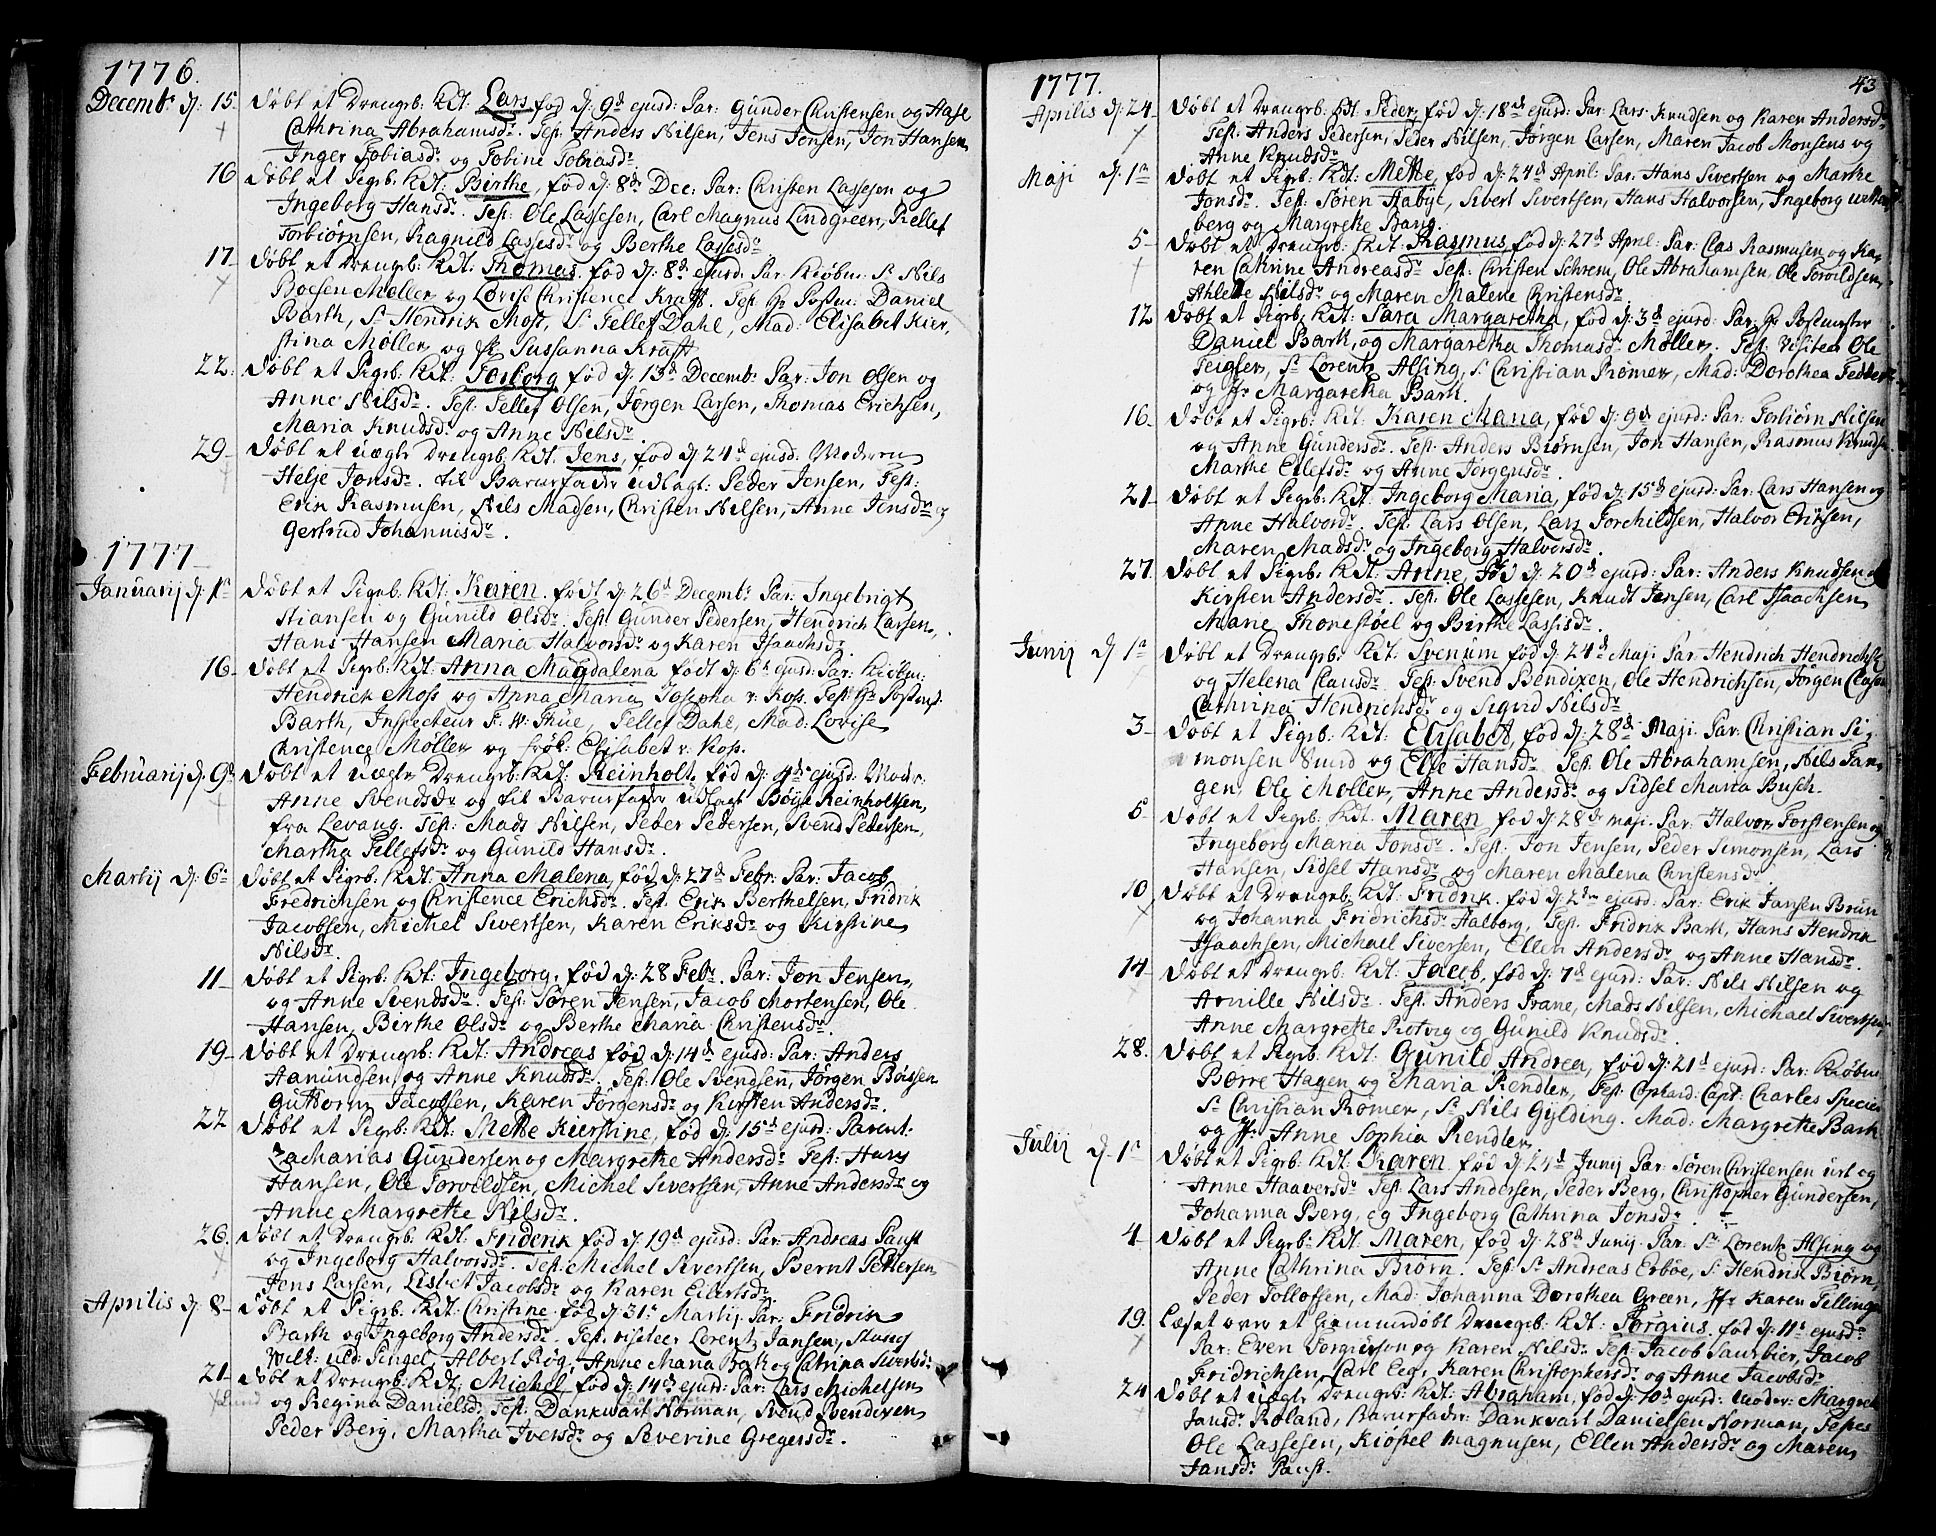 1776.
Decembr d: 15. Døbt et Drengb: Kdt: Lars, fød d: 9d ejusd: Par: Gunder Christensen og
Cathrina Abrahamsdr. Test: Anders Nilsen, Jens Jonsen, Jon Hansen,
Inger Tobiasdr og Tobine Tobiasdr.
16 Døbt et Pigeb: Kdt: Birthe, fød d: 8d Dec: Par: Christen Lassesen og
Ingeborg Hansdr. Test: Ole Lassesen, Carl Magnus Lindgreen, Kellef
Torbiørnsen, Ragnild Lassesdr og Berthe Lassesdr
17. Døbt et Drengb: Kdt: Thomas, fød d: 8d ejusd: Par: Kiøbm: Sr Nils
Boesen Møller og Lovise Christence Kraft. Test: Hr Postm: Daniel
Barth, Sr Hendrik Moss, Sr Tellef Dahl, Mad: Elisabet Kier,
stina Møller og Sussanna Kraft
22. Døbt et Pigeb: Kdt: Torborg fød d: 13d Decembr: Par: Jon Olsen og
Anne Nilsdr. Test: Tellef Olsen, Jørgen Larsen, Thomas Erichsen,
Maria Knudsdr og Anne Nilsdr.
29. Døbt et uægte Drengb: Kdt: Jens, fød d: 24d ejusd: Moderen
Helje Jonsdr. til Barnefader udlagt: Peder Jensen, Test:
Erik Rasmusen, Nils Madsen, Christen Nilsen, Anne Jensdr og
Gertrud Johannisdr.
1777
Januarij d: 1a Døbt et Pigeb: Kdt: Karen, født d: 26d Decembr: Par: Ingebrigt
Stiansen og Gunild Olsdr. Test: Gunder Pedersen, Hendrich Larsen,
Hans Hansen Maria Halvorsdr og Karen Isaachsdr.
16. Døbt et Pigeb: Kdt: Anna Magdalena født d: 6d ejusd: Par: Kiøbm:
Hendrick Moss og Anna Maria Josepha v: Koss. Test: Hr Postm:
Barth, Inspecteur F: W: Thue, Tellef Dahl, Mad: Lovise
Christence Møller og frøk: Elisabet v: Koss.
Februarij d: 9d Døbt et uægte Drengb: Kdt: Reinholt, fød d: 4d ejusd: Moder:
Anne Svendsdr og til Barnefader udlagt Bøye Reinholtsen,
fra Levang. Test: Mads Nilsen, Peder Pedersen, Svend Pedersen,
Martha Tellefsdr og Gunild Hansdr.
Martij d: 6a Døbt et Pigeb: Kdt: Anna Malena, fød d: 27d Febr: Par: Jacob
Fredrichsen og Christence Erichsdr. Test: Erik Berthelsen, Fridrik
Jacobsen, Michel Sivertsen, Karen Eriksdr og Kirstine
Nilsdr.
11 Døbt et Pigeb: Kdt: Ingeborg, fød d: 28 Febr. Par: Jon Jensen,
og Anne Svendsdr. Test: Søren Jensen, Jacob Mortensen, Ole
Hansen, Birthe Olsdr og Berthe Maria Christensdr.
19 Døbt et Drengb: Kdt: Andreas fød d: 14d ejusd: Par: Anders
Aanundsen, og Anne Knudsdr. Test: Ole Svendsen, Jørgen Boissen
Guttorm Jacobsen, Karen Jørgensdr og Kirsten Andersdr.
22 Døbt et Pigeb: Kdt: Mette Kierstine, fød d: 15d ejusd: Parent:
Zacharias Gundersen og Margrethe Andersdr. Test: Hans
Hansen, Ole Torvildsen, Michel Sivertsen, Anne Andersdr og
Anne Margrette Nilsdr.
26. Døbt et Drengb: Kdt: Friderik fød d: 19d ejusd: Par: Andreas Paust
og Ingeborg Halvorsdr. Test: Michel Sivertsen, Bernt Pettersen
Jens Larsen, Lisbet Jacobsdr og Karen Eilertsdr.
Aprilis d: 8 Døbt et Pigeb: Kdt: Christine, fød d: 31t Martij Par: Fridrik
Barth og Ingeborg Andersdr. Test: visiteer Lorentz Jansen,
Albert Røg, Anne Maria Bak og Catrina Sivertsdr
21 Døbt et Drengb: Kdt: Michel fød d: 14d ejusd: Par: Lars Michelsen
Lund og Regina Danielsdr, Test: Dankwart Norman, Svend Svendixen
Peder Berg, Martha Iversdr og Severine Gregersdr.
1777. 43
Aprilis d: 24 Døbt et Drengb: Kdt: Peder, fød d: 18d ejusd: Par: Lars Knudsen og Karen Andersdr
Test: Anders Pedersen, Peder Nilsen, Jørgen Larsen, Maren Jacob Monsens og
Anne Knudsdr
Maji d: 1a Døbt et Pigeb: Kdt: Mette, fød d: 24d April: Par: Hans Sivertsen og Marthe
Jonsdr. Test: Søren Aabye, Sivert Sivertsen, Hans Halvorsen, Ingeborg
berg og Margrethe Bang.
5 Døbt et Drengb: Kdt: Rasmus, fød d: 27d April: Par: Clas Rasmusen og Ka-
ren Cathrine Andreasdr Test: Christen Schrem, Ole Abrahamsen, Ole Torvildsen,
Ahlette Nilsdr og Maren Malene Christensdr.
12 Døbt et Pigeb: Kdt: Sara Margaretha, fød d: 3d ejusd: Par: Hr Postmester
Daniel Barth, og Margaretha Thomasdr Møller. Test: Visiteer Ole
Teigler, Sr Lorentz Alsing, Sr Christian Rømer, Mad: Dorothea
og Jfr Margaretha Barth.
16. Døbt et Pigeb: Kdt: Karen Maria, fød d: 9d ejusd: Par: Torbiørn Nilsen
og Anne Gundersdr. Test: Anders Biørnsen, Jon Hansen, Rasmus Knudsen
Marthe Ellefsdr og Anne Jørgensdr.
21 Døbt et Pigeb: Kdt: Ingeborg Maria, fød d: 15d ejusd: Par: Lars Hansen og
Anne Halvorsdr. Test: Lars Olsen, Lars Torchildsen, Halvor Eriksen,
Maren Madsdr og Ingeborg Halvorsdr.
27. Døbt et Pigeb: Kdt: Anne, fød d: 20d ejusd: Par: Anders Knudsen og
Kirsten Andersdr. Test: Ole Lassesen, Knudt Jensen, Carl Isaachsen
Marie Thorestøel og Birthe Lassisdr.
Junij d: 1a Døbt et Drengb: Kdt: Svenum fød d: 24d Maji. Par: Hendrich Hendrichs
og Helena Clausdr. Test: Svend Bendixen, Ole Hendrichsen, Jørgen Clasen
Cathrina Hendrichsdr og Sigrid Nilsdr.
3 Døbt et Pigeb: Kdt: Elisabet, fød d: 28d Maji: Par: Christian Si-
monsen Smid og Else Hansdr. Test: Ole Abrahamsen, Nils Tan-
gen, Ole Møller, Anne Andersdr og Sidsel Maria Busch.
5 Døbt et Pigeb: Kdt: Maren fød d: 28d maji. Par: Halvor Torstensen og
Ingeborg Maria Jonsdr. Test: Jon Jensen, Peder Simonsen, Lars
Hansen, Sidsel Hansdr og Maren Malena Christensdr
10 Døbt et Drengeb: Kdt: Fridrik fød d: 2den ejusd: Par: Erik Jansen Brun
og Johanna Fridrichsdr Halborg, Test: Fridrik Barth, Hans Hendrik
Isaachsen, Michael Siversen, Ellen Andersdr og Anne Hansdr.
14 Døbt et Drengb: Kdt: Jacob, fød d: 7d ejusd: Par: Nils Nilsen og
Arnille Nilsdr. Test: Anders Trane, Mads Nilsen, Michael Sivertsen,
Anne Margrette Rotvig og Gunild Knudsdr.
28. Døbt et Pigeb: Kdt: Gunild Andrea, fød d: 21d ejusd: Par: Kiøbm
Børre Hagen og Maria Rendler, Test: Capt: Charles
Sr Christian Rømer, Sr Nils Gylding. Mad: Margrette Barth
og Jfr Anne Sophia Rendler
Julij d: 1a Døbt et Pigeb: Kdt: Karen fød d: 24d Junij Par: Søren Christensen og
Anne Haaversdr Test: Lars Andersen, Peder Berg, Christopher Gundersen,
Johanna Berg, og Ingeborg Cathrina Jonsdr.
4 Døbt et Pigeb: Kdt: Maren, fød d: 28d Junij Par: Sr Lorentz Alsing og
Anne Cathrina Biørn. Test: Sr Andreas Erbøe, Sr Hendrik Biørn,
Peder Tolloffsen, Mad: Johanna Dorothea Green, Jfr Karen
19. Læset over et hiemmedøbt Drengb: Kdt: Torgius, fød d: 11t ejusd:
Par: Even Torgiursen og Karen Nilsdr Test: Jacob Saurbier, Jacob
Fridrichsen, Carl Eeg, Karen Christophersdr og Anne Jacobsdr
24 Døbt et uægte Drengb: Kdt: Abraham, fød d: 10d ejusd: Moder: Margreth
Jansdr Roland, Barnefader: Dankvart Danielsen Norman, Testes
Ole Lassesen, Kiøstel Magnusen, Ellen Andersdr og Maren
Jansdr Paust.